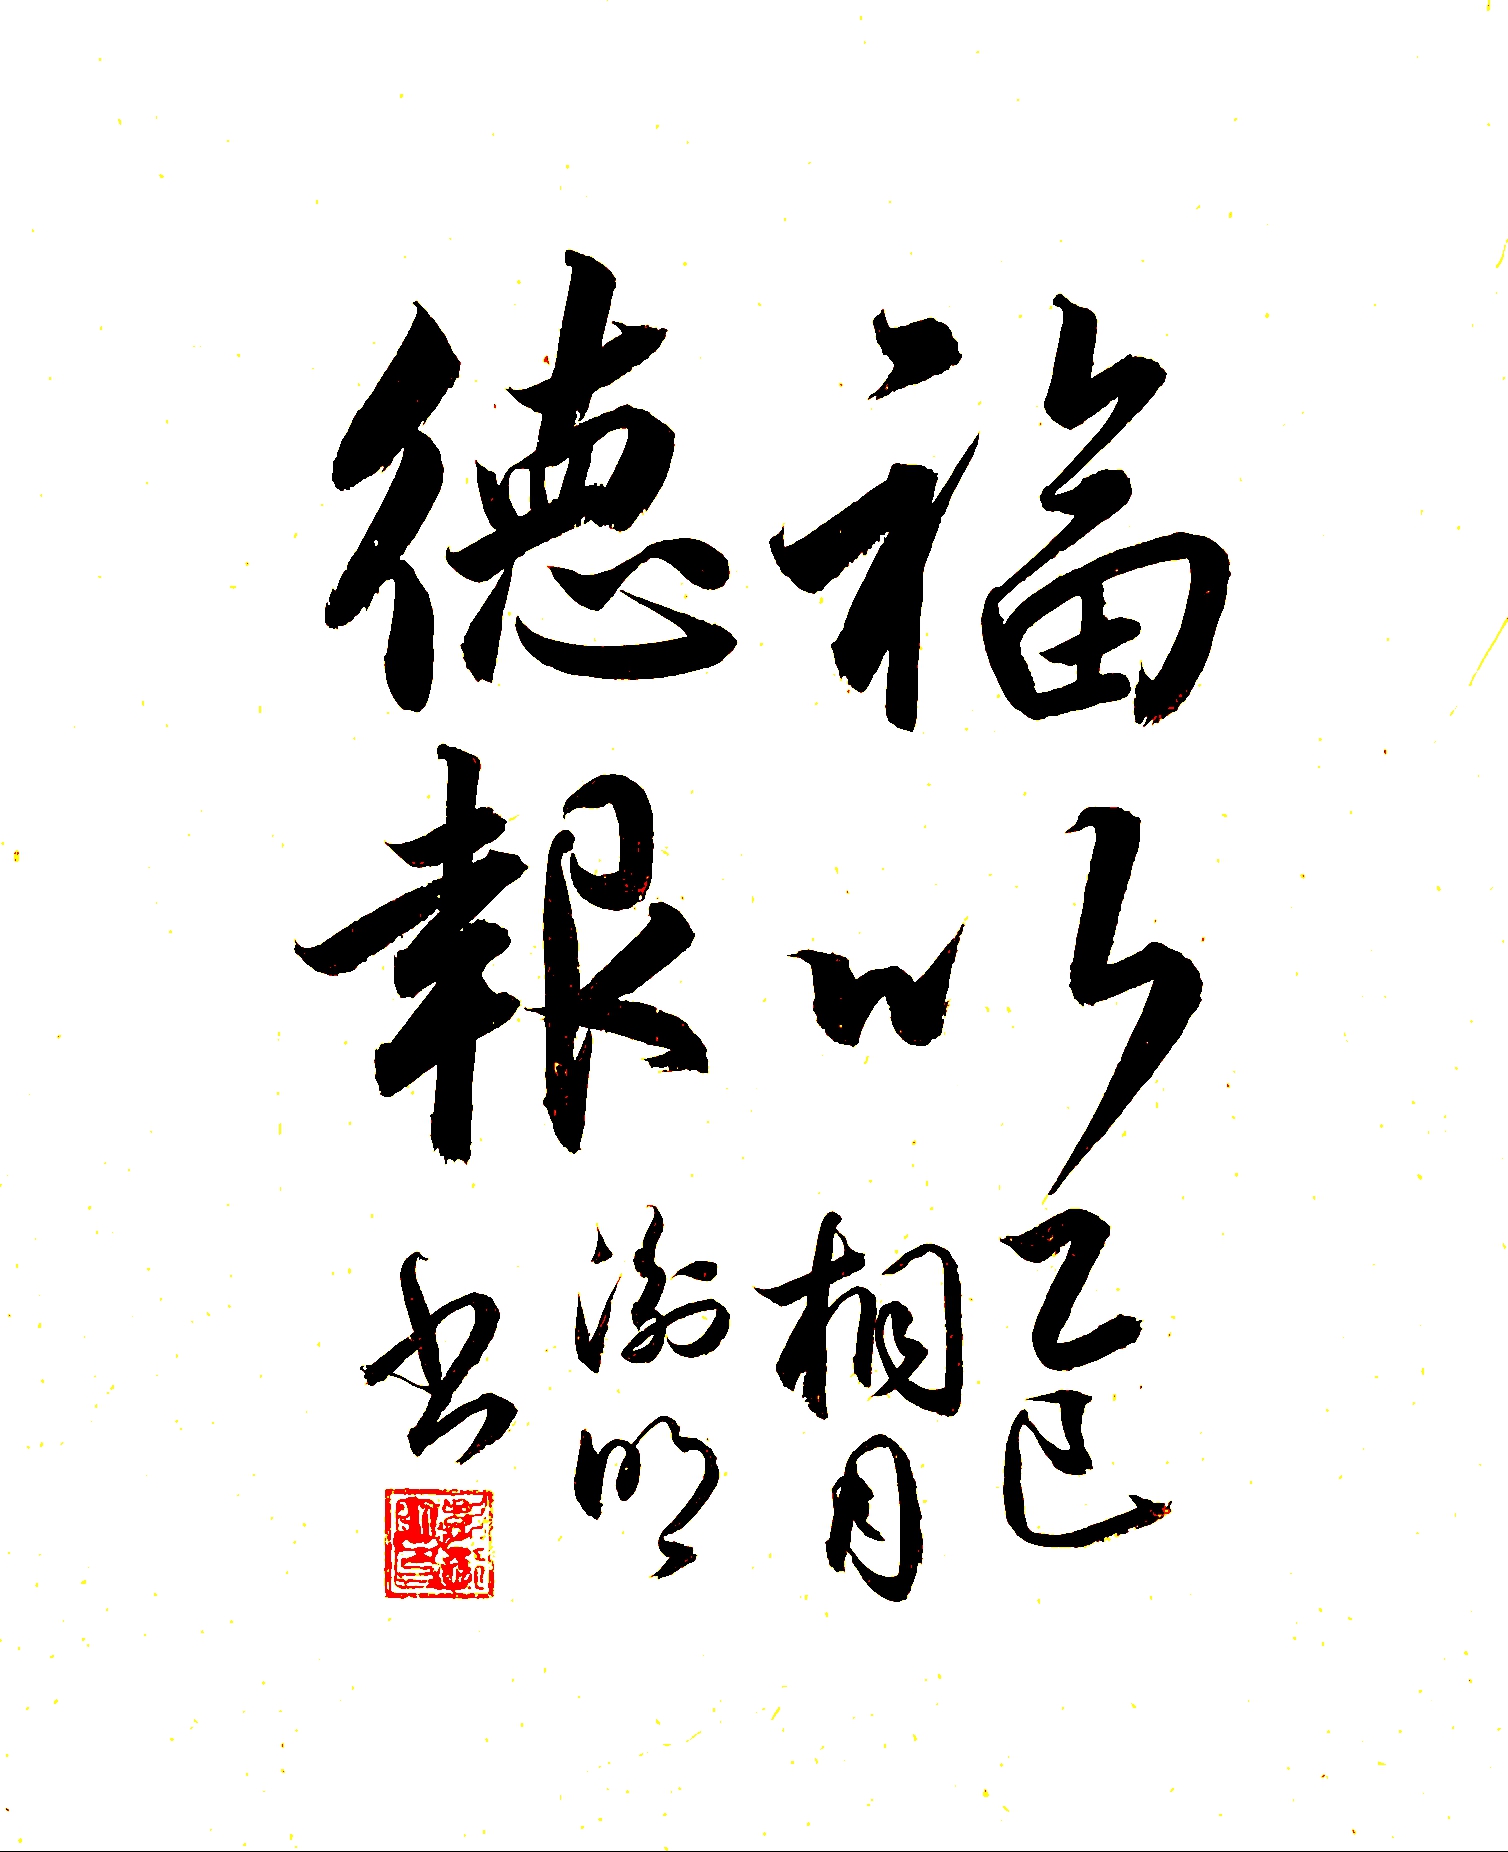 福以
德報
乙巳
桐月
明
書